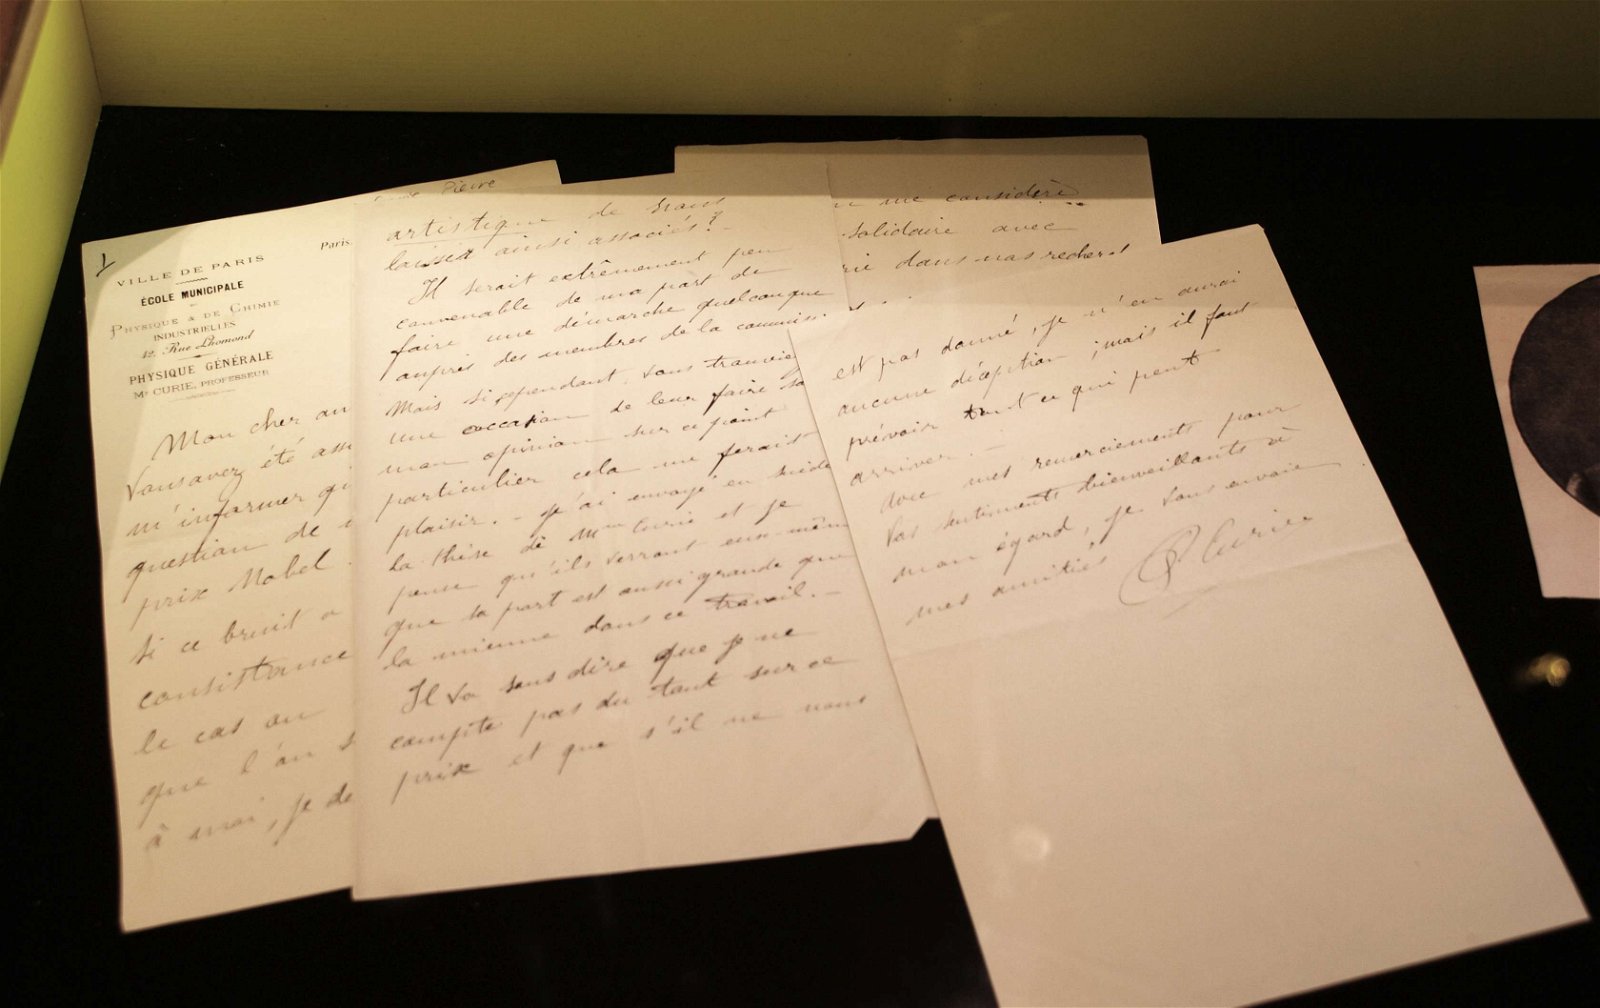 1
Paris
VILLE DE PARIS
ÉCOLE MUNICIPALE
PHYSIQUE & DE CHIMIE
INDUSTRIELLES
42, Rue Lhomond
PHYSIQUE GÉNÉRALE
Mr CURIE, PROFESSEUR
Mon cher am
Vous avez été
m'informer
question de
prix Nobel
Si ce bruit a
consistance
le cas où
que l'on
à moi, je de
Pierre
artistique de nous
laisser ainsi associés ?
Il serait extrêmement peu
convenable de ma part de
faire une démarche quelconque
auprès des membres de la commiss
Mais si cependant vous trouviez
une occasion de leur faire sa
mon opinion sur ce point
particulier cela me ferait
plaisir. – J'ai envoyé en suède
la thèse de Mme Curie et je
pense qu'ils verront eux-même
que sa part est aussi grande que
la mienne dans ce travail. –
Il va sans dire que je ne
compte pas du tout sur ce
prix et que s'il ne nous
me considère
solidaire avec
rie dans nos recher
est pas donné, je n'en aurai
aucune déception ; mais il faut
prévoir tout ce qui peut
arriver. –
Avec mes remerciements pour
vos sentiments bienveillants à
mon égard, je vous envoie
mes amitiés
P. Curie